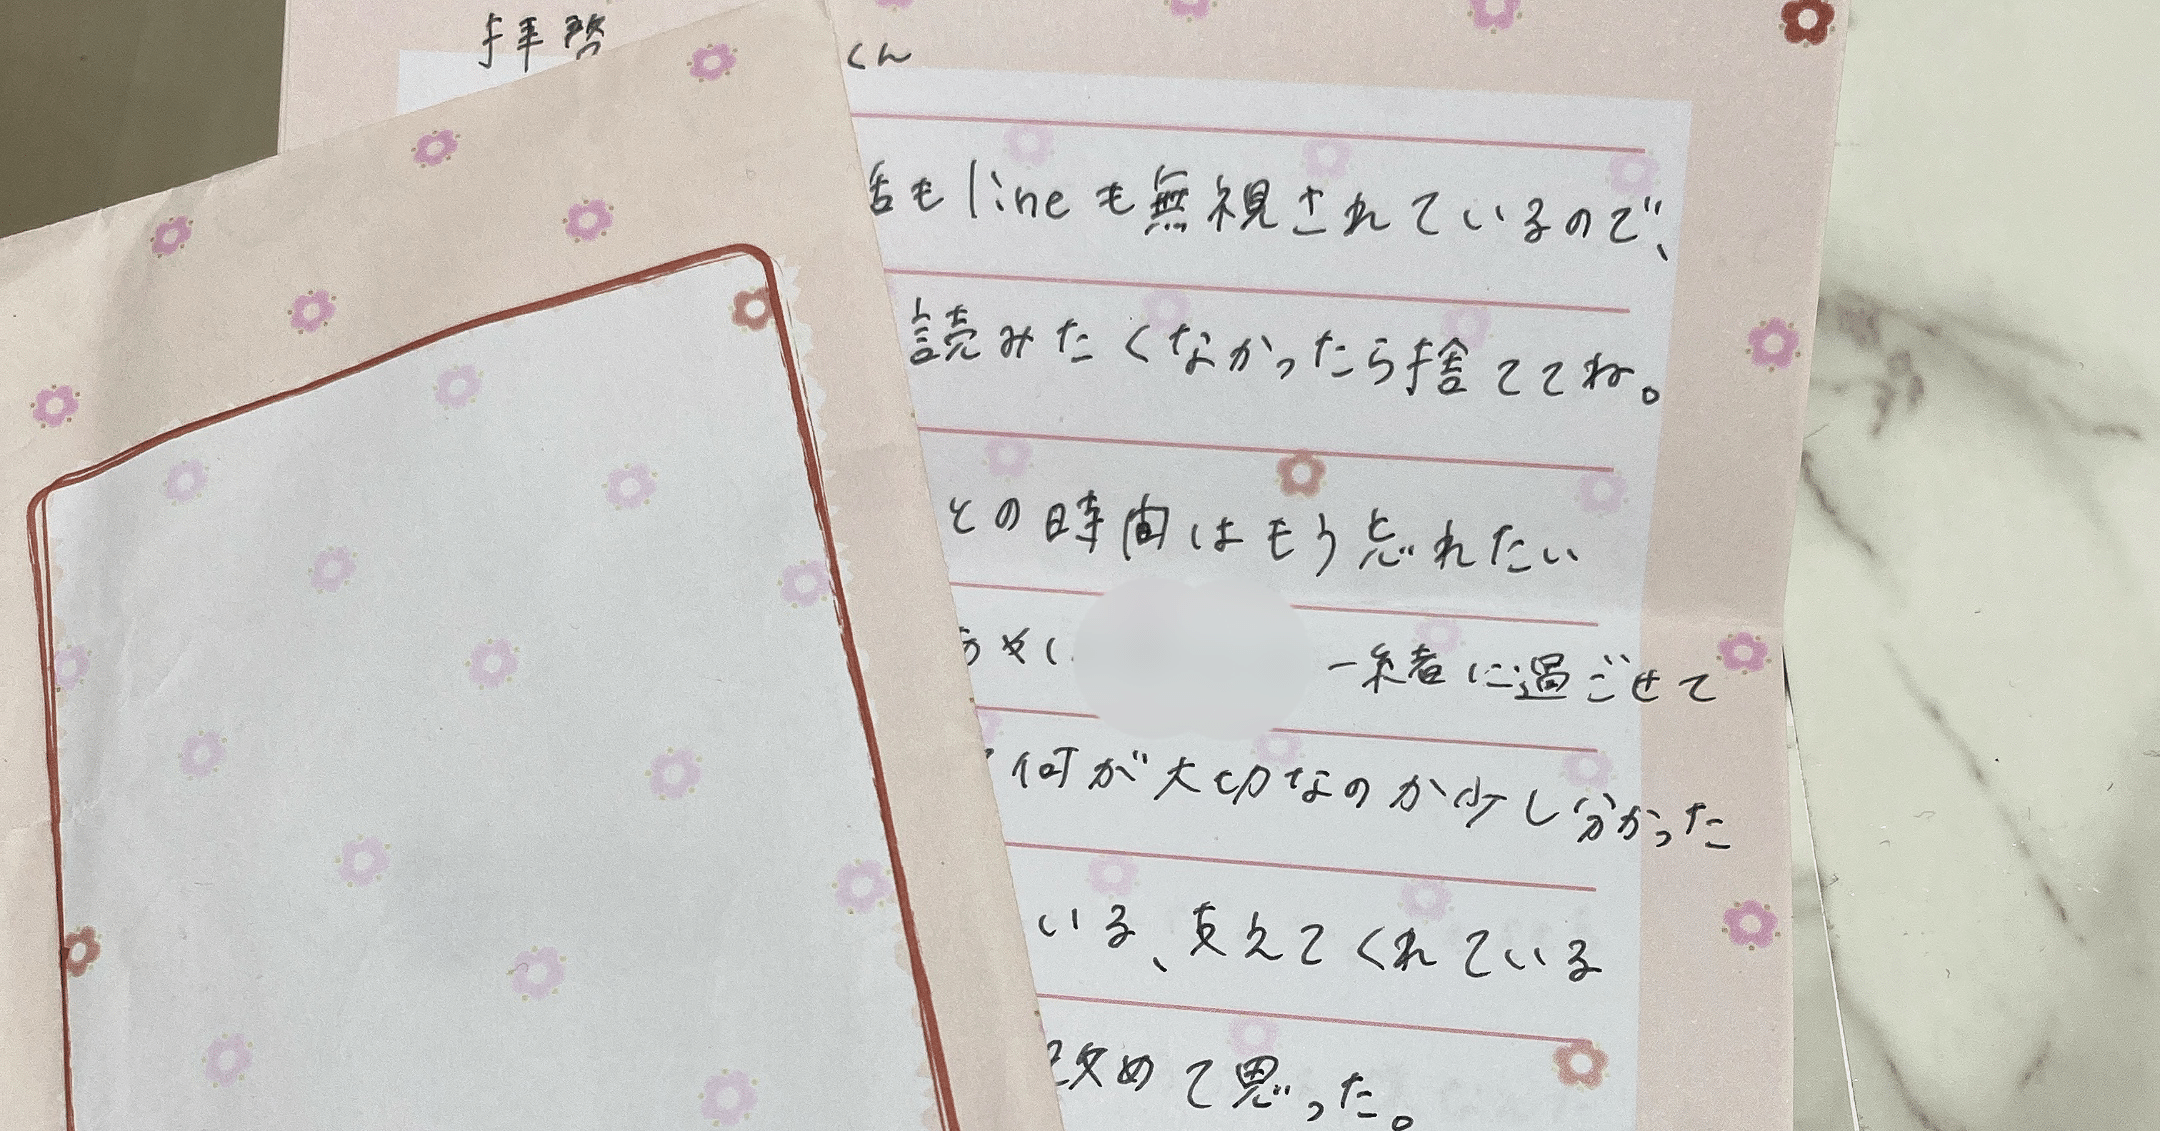 拝啓 くん
もlineも無視されているので、
読みたくなかったら捨ててね。
との時間はもう忘れたい
一緒に過ごせて
何が大切なのか少し分かった
いる、支えてくれている
改めて思った。